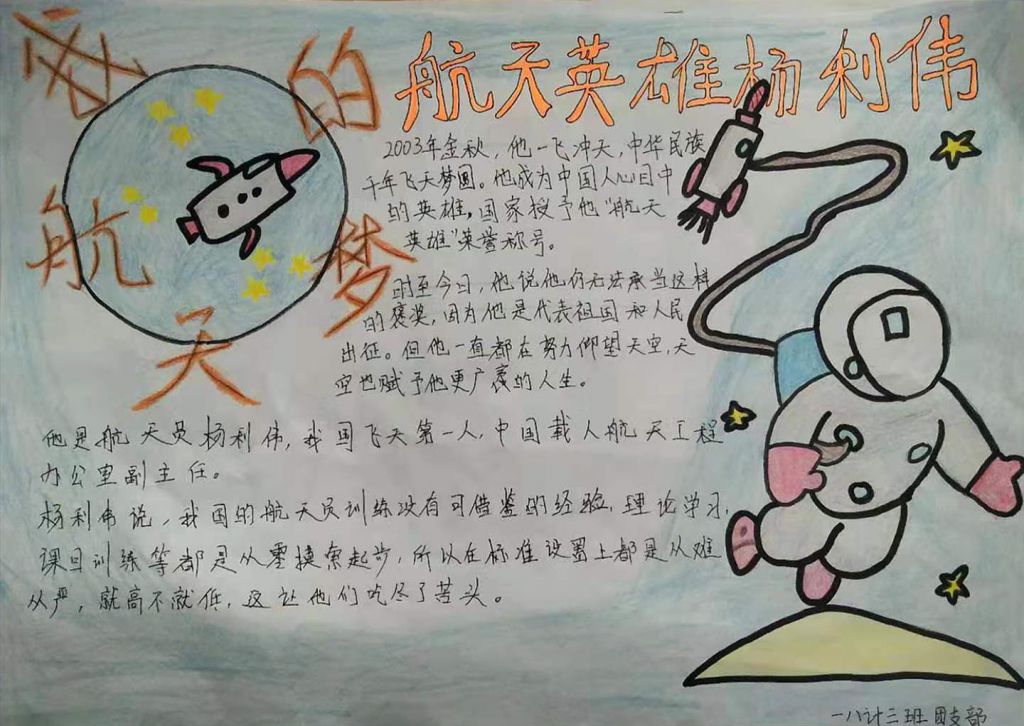 我的
航天梦
航天英雄杨利伟
2003年金秋，他一飞冲天，中华民族
千年飞天梦圆。他成为中国人心目中
的英雄。国家授予他“航天
英雄”荣誉称号。
时至今日，他说他仍无法承当这样
的褒奖，因为他是代表祖国和人民
出征。但他一直都在努力仰望天空，天
空也赋予他更广袤的人生。
他是航天员杨利伟，我国飞天第一人，中国载人航天工程
办公室副主任。
杨利伟说，我国的航天员训练没有可借鉴的经验，理论学习，
课目训练等都是从零摸索起步，所以在标准设置上都是从难
从严，就高不就低，这让他们吃尽了苦头。
一八计三班团支部